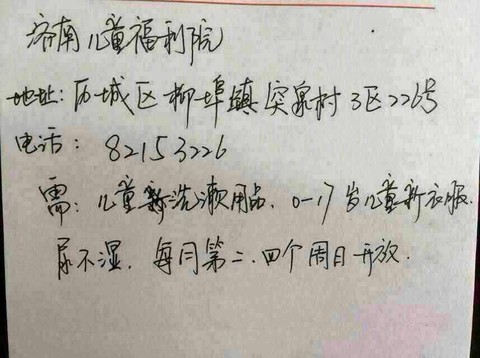 济南儿童福利院
地址:历城区柳埠镇突泉村3区226号
电话:82153226
需:儿童新洗漱用品、0-17岁儿童新衣服、
尿不湿,每月第二、四个周日开放.